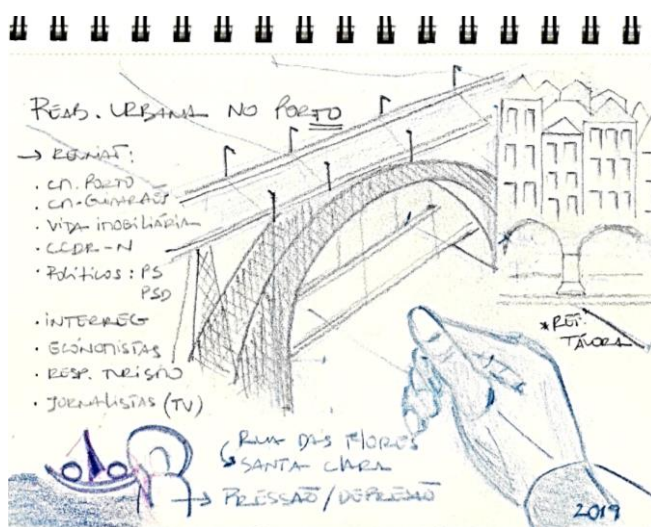 REAB. URBANA NO PORTO
→ REUNIAT:
· CM. PORTO
· CM. GUIMARÃES
· VIDA IMOBILIÁRIA
· CCDR-N
· POLÍTICOS: PS
PSD
· INTERREG
· ECONOMISTAS
· RESP. TURISMO
· JORNALISTAS (TV)
* REF:
TÁVORA
RUA DAS FLORES
SANTA CLARA
→ PRESSÃO/DEPRESSÃO
2019